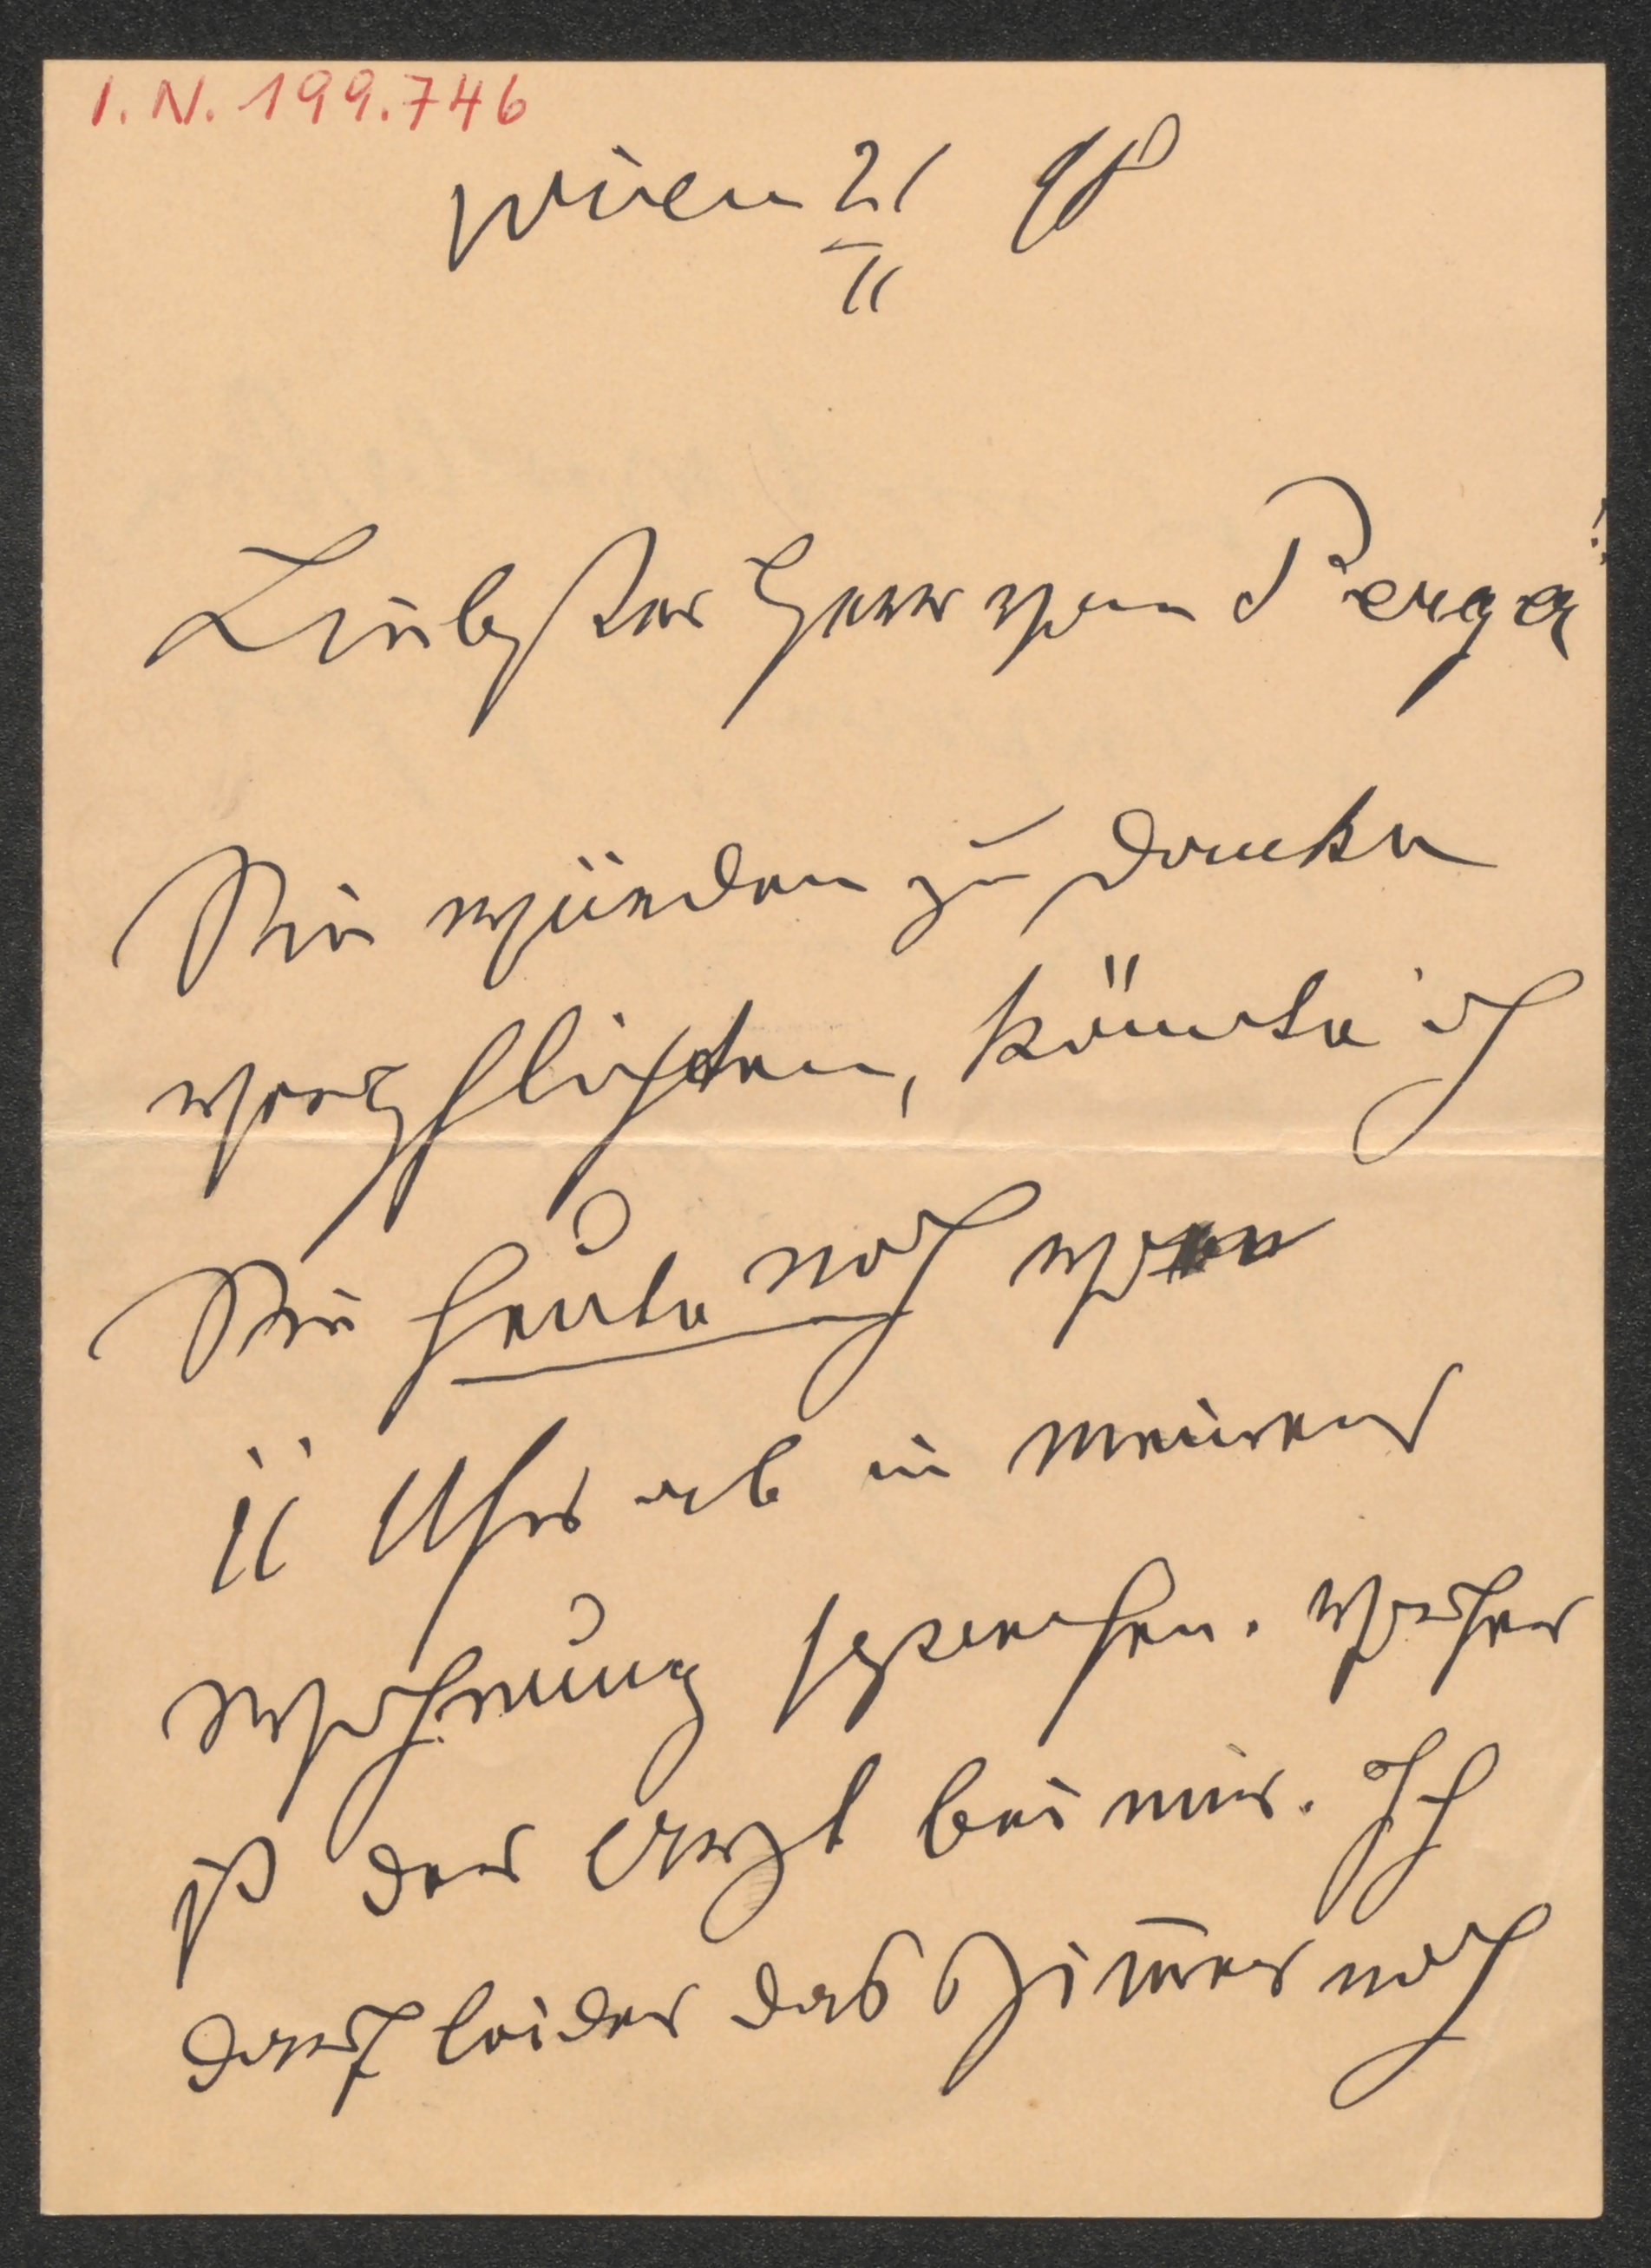 I. N. 199.746
Wien 21 98
11
Liebster Herr von Perger!
Sie würden zu Danke
verpflichten, könnte ich
Sie heute noch von
11 Uhr ab in meiner
Wohnung sprechen. Vorher
ist der Arzt bei mir. Ich
darf leider das Zim̅er noch